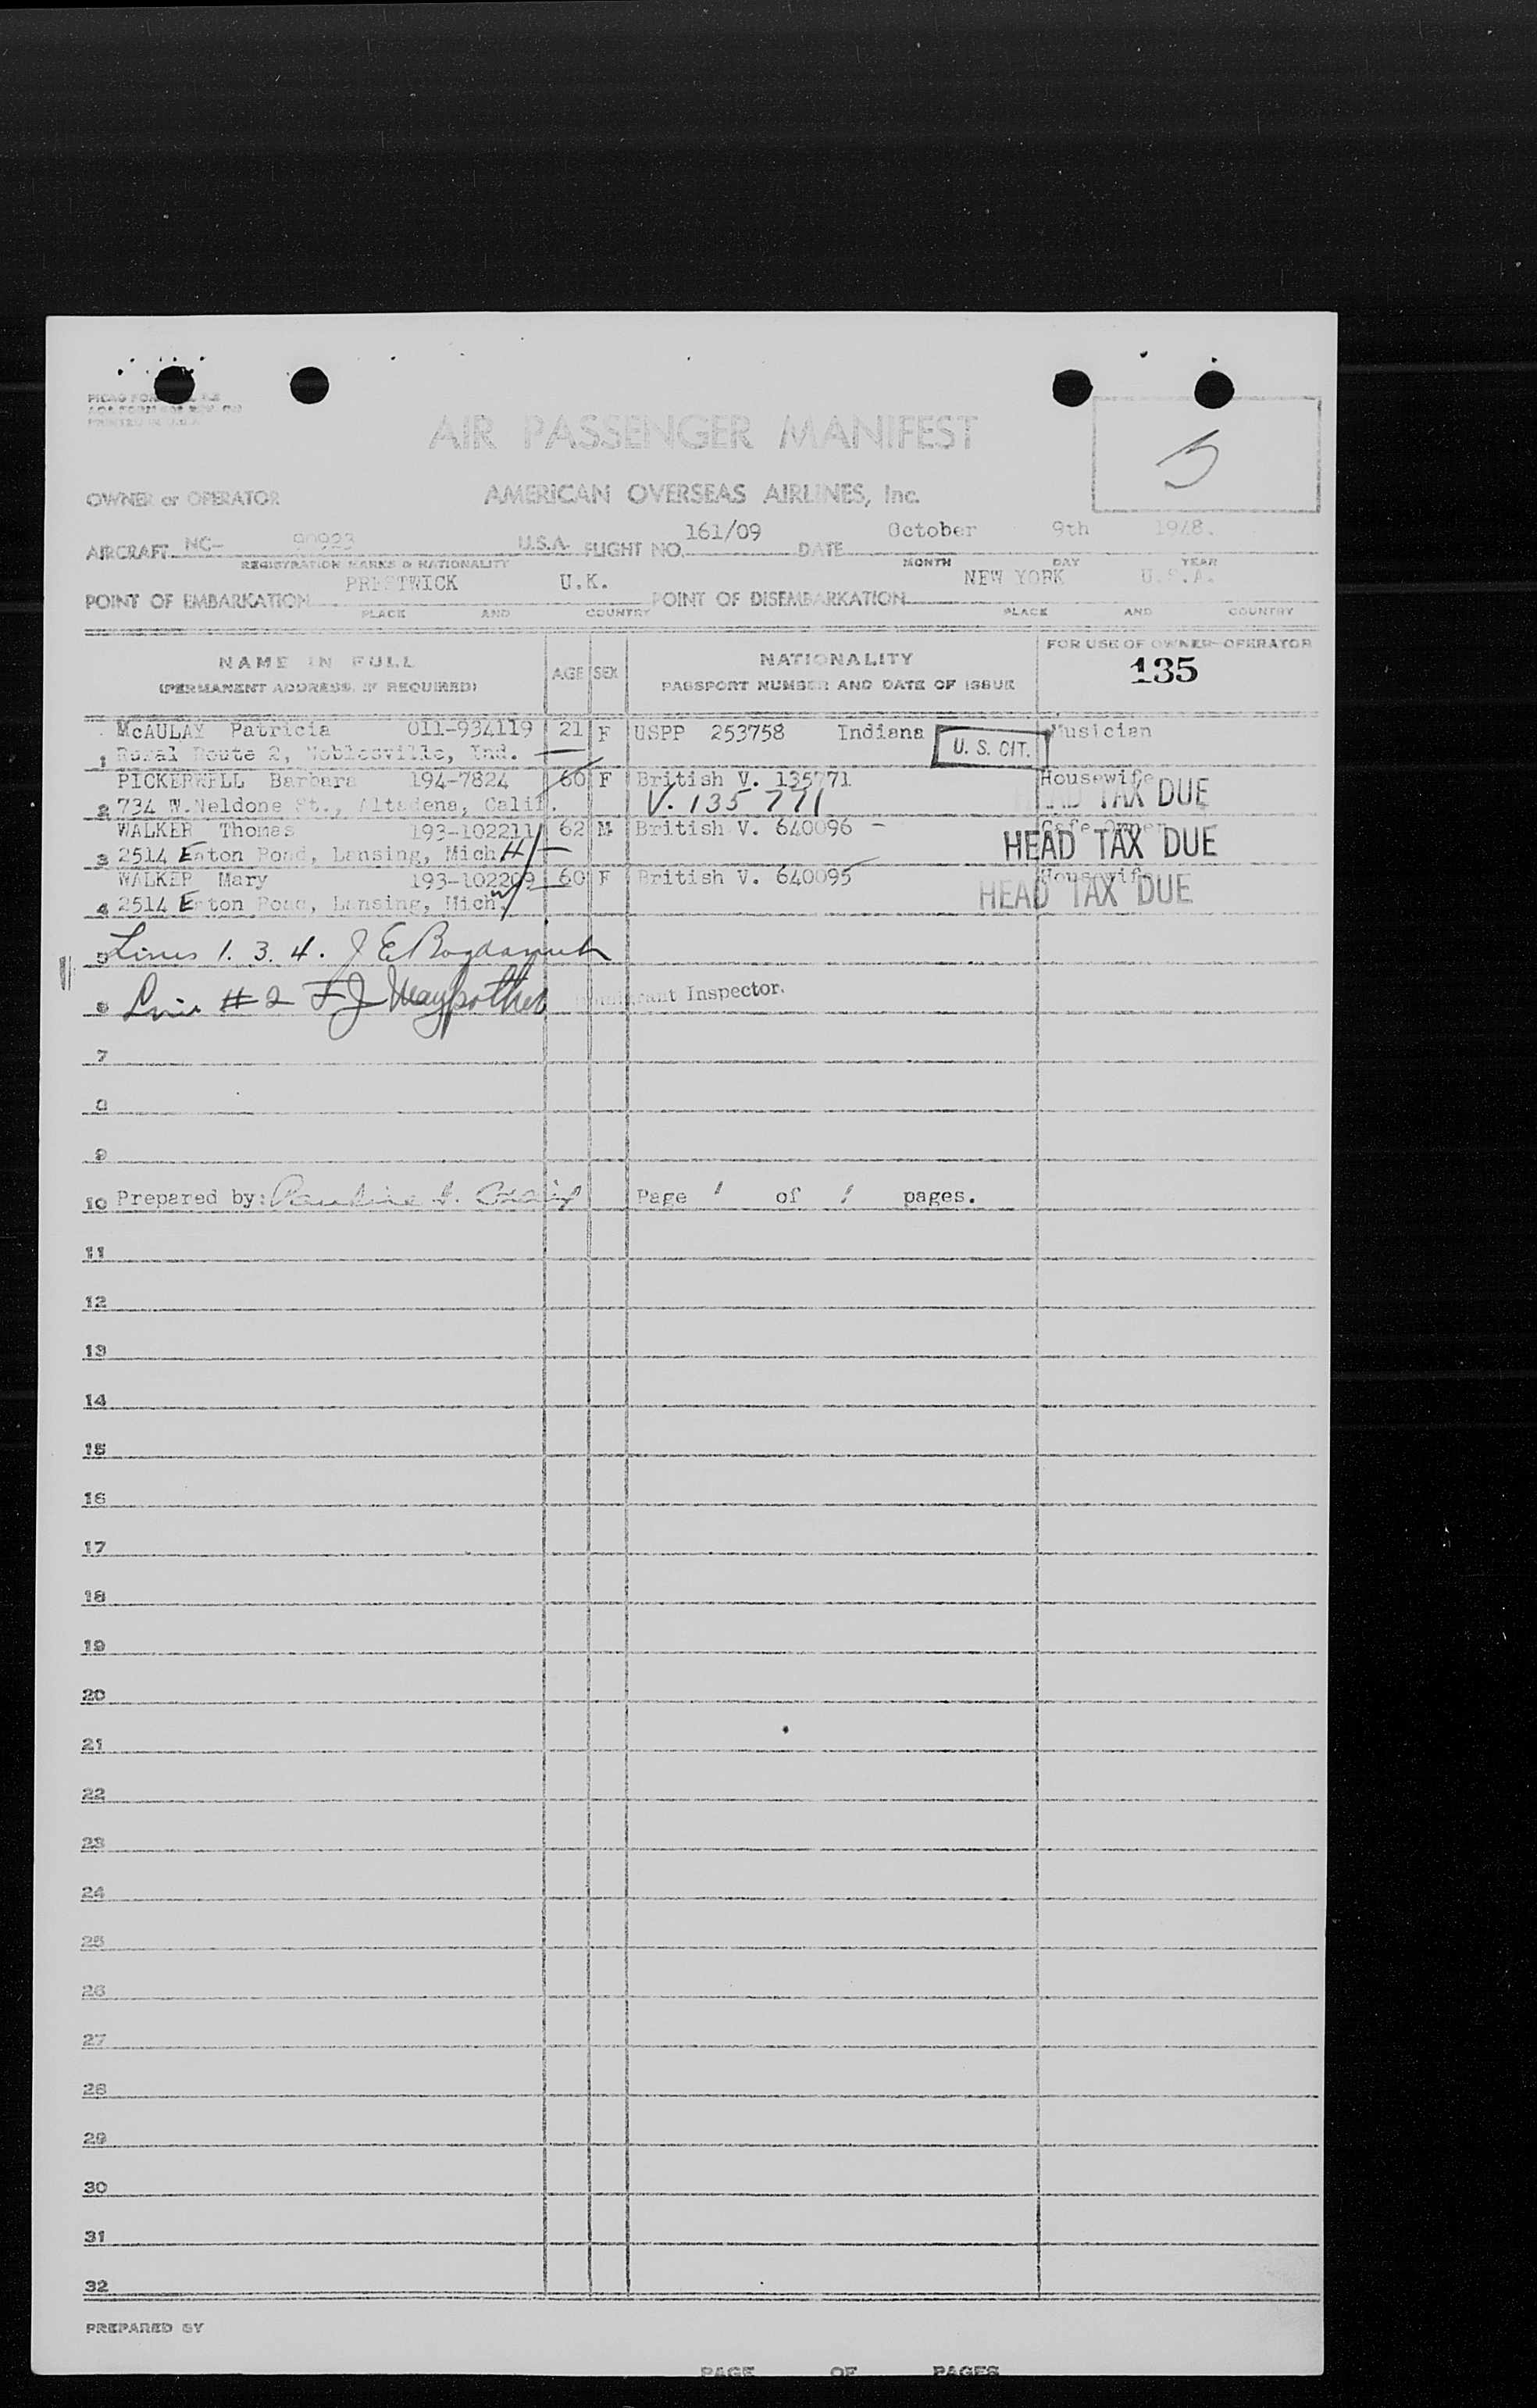 PRINTED IN U.S.A.
AIR PASSENGER MANIFEST
5
OWNER or OPERATOR AMERICAN OVERSEAS AIRLINES, Inc.
AIRCRAFT NC- 90923 U.S.A. FLIGHT NO. 161/09 DATE October 9th 1948.
REGISTRATION MARKS & NATIONALITY MONTH DAY YEAR
POINT OF EMBARKATION PRESTWICK U.K. POINT OF DISEMBARKATION NEW YORK U.S.A.
PLACE AND COUNTRY PLACE AND COUNTRY
NAME IN FULL AGE SEX NATIONALITY FOR USE OF OWNER-OPERATOR
(PERMANENT ADDRESS, IF REQUIRED) PASSPORT NUMBER AND DATE OF ISSUE 135
McAULAY Patricia 011-934119 21 F USPP 253758 Indiana U. S. CIT. Musician
1 Rural Route 2, Noblesville, Ind.
PICKERWELL Barbara 194-7824 60 F British V. 135771 Housewife
2 734 W.Neldone St., Altadena, Calif. V. 135771 TAX DUE
WALKER Thomas 193-102211 62 M British V. 640096 - Cafe Owner
3 2514 Eaton Road, Lansing, Mich HEAD TAX DUE
WALKER Mary 193-102209 60 F British V. 640095 Housewife
4 2514 Eaton Road, Lansing, Mich. HEAD TAX DUE
5 Lines 1. 3. 4. J E
6 Line #2 F J Immigrant Inspector.
7
8
9
10 Prepared by: Page 1 of 1 pages.
11
12
13
14
15
16
17
18
19
20
21
22
23
24
25
26
27
28
29
30
31
32
PREPARED BY
PAGE OF PAGES